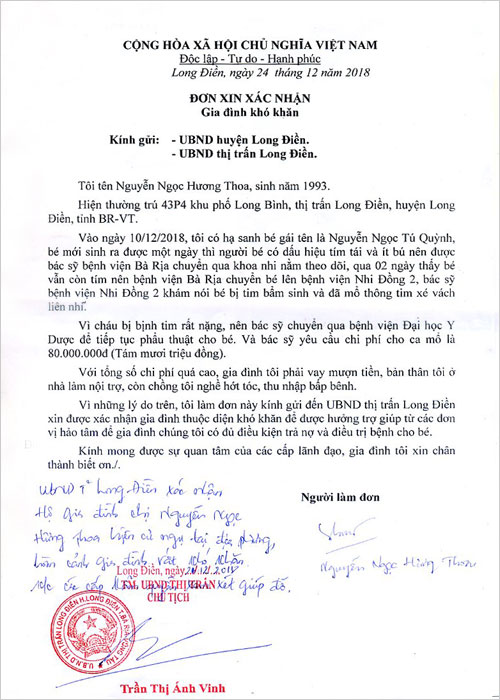 CỘNG HÒA XÃ HỘI CHỦ NGHĨA VIỆT NAM
Độc lập - Tự do - Hạnh phúc
Long Điền, ngày 24 tháng 12 năm 2018
ĐƠN XIN XÁC NHẬN
Gia đình khó khăn
Kính gửi: - UBND huyện Long Điền.
- UBND thị trấn Long Điền.
Tôi tên Nguyễn Ngọc Hương Thoa, sinh năm 1993.
Hiện thường trú 43P4 khu phố Long Bình, thị trấn Long Điền, huyện Long
Điền, tỉnh BR-VT.
Vào ngày 10/12/2018, tôi có hạ sanh bé gái tên là Nguyễn Ngọc Tú Quỳnh,
bé mới sinh ra được một ngày thì người bé có dấu hiệu tím tái và ít bú nên được
bác sỹ bệnh viện Bà Rịa chuyển qua khoa nhi nằm theo dõi, qua 02 ngày thấy bé
vẫn còn tím nên bệnh viện Bà Rịa chuyển bé lên bệnh viện Nhi Đồng 2, bác sỹ
bệnh viện Nhi Đồng 2 khám nói bé bị tim bẩm sinh và đã mổ thông tim xé vách
liên nhĩ.
Vì cháu bị bịnh tim rất nặng, nên bác sỹ chuyển qua bệnh viện Đại học Y
Dược để tiếp tục phẩu thuật cho bé. Và bác sỹ yêu cầu chi phí cho ca mổ là
80.000.000đ (Tám mươi triệu đồng).
Với tổng số chi phí quá cao, gia đình tôi phải vay mượn tiền, bản thân tôi ở
nhà làm nội trợ, còn chồng tôi nghề hớt tóc, thu nhập bấp bênh.
Vì những lý do trên, tôi làm đơn này kính gửi đến UBND thị trấn Long Điền
xin được xác nhận gia đình thuộc diện khó khăn để được hưởng trợ giúp từ các đơn
vị hảo tâm để gia đình chúng tôi có đủ điều kiện trả nợ và điều trị bệnh cho bé.
Kính mong được sự quan tâm của các cấp lãnh đạo, gia đình tôi xin chân
thành biết ơn./.
Người làm đơn
UBND Long Điền xác nhận
Hộ gia đình chị Nguyễn Ngọc
Hương Thoa hiện cư ngụ tại địa phương,
hoàn cảnh gia đình rất khó khăn.
các cấp xét giúp đỡ.
Nguyễn Ngọc Hương Thoa
Long Điền, ngày
TM. UBND THỊ TRẤN
CHỦ TỊCH
U.B.N.D THỊ TRẤN LONG ĐIỀN H.LONG ĐIỀN T.BÀ RỊA VŨNG TÀU
Trần Thị Ánh Vinh